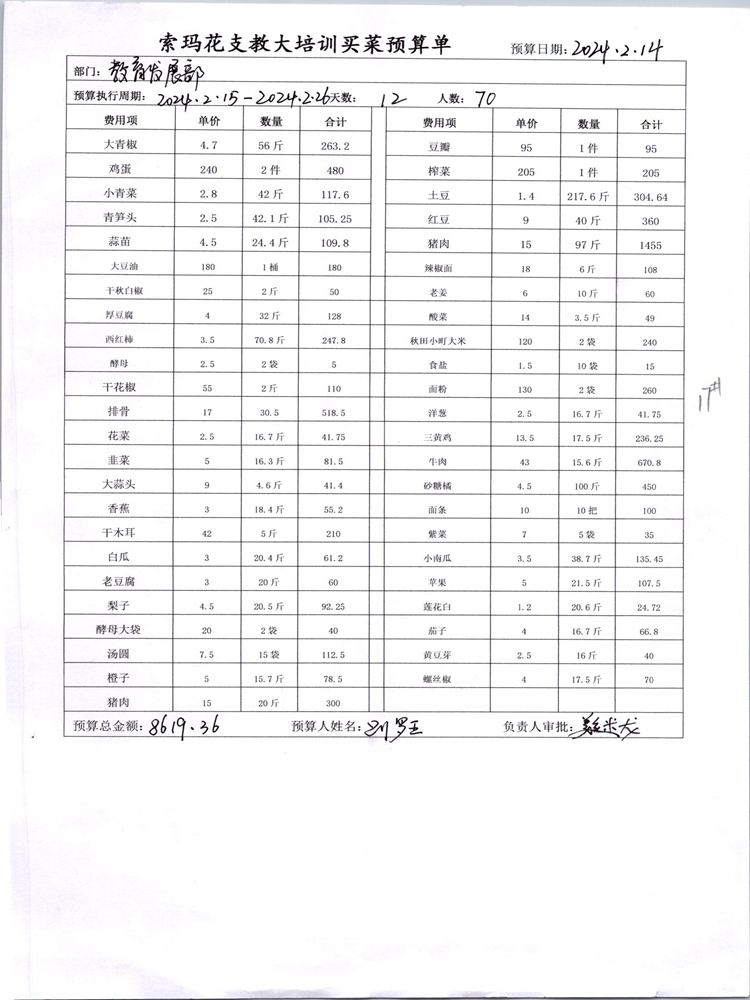 索玛花支教大培训买菜预算单 预算日期：2024.2.14
部门：教育发展部
预算执行周期：2024.2.15-2024.2.26 天数： 12 人数：70
费用项 单价 数量 合计 费用项 单价 数量 合计
大青椒 4.7 56斤 263.2 豆瓣 95 1件 95
鸡蛋 240 2件 480 榨菜 205 1件 205
小青菜 2.8 42斤 117.6 土豆 1.4 217.6斤 304.64
青笋头 2.5 42.1斤 105.25 红豆 9 40斤 360
蒜苗 4.5 24.4斤 109.8 猪肉 15 97斤 1455
大豆油 180 1桶 180 辣椒面 18 6斤 108
干秋白椒 25 2斤 50 老姜 6 10斤 60
厚豆腐 4 32斤 128 酸菜 14 3.5斤 49
西红柿 3.5 70.8斤 247.8 秋田小町大米 120 2袋 240
酵母 2.5 2袋 5 食盐 1.5 10袋 15
干花椒 55 2斤 110 面粉 130 2袋 260
排骨 17 30.5 518.5 洋葱 2.5 16.7斤 41.75
花菜 2.5 16.7斤 41.75 三黄鸡 13.5 17.5斤 236.25
韭菜 5 16.3斤 81.5 牛肉 43 15.6斤 670.8
大蒜头 9 4.6斤 41.4 砂糖橘 4.5 100斤 450
香蕉 3 18.4斤 55.2 面条 10 10把 100
干木耳 42 5斤 210 紫菜 7 5袋 35
白瓜 3 20.4斤 61.2 小南瓜 3.5 38.7斤 135.45
老豆腐 3 20斤 60 苹果 5 21.5斤 107.5
梨子 4.5 20.5斤 92.25 莲花白 1.2 20.6斤 24.72
酵母大袋 20 2袋 40 茄子 4 16.7斤 66.8
汤圆 7.5 15袋 112.5 黄豆芽 2.5 16斤 40
橙子 5 15.7斤 78.5 螺丝椒 4 17.5斤 70
猪肉 15 20斤 300
预算总金额：8619.36 预算人姓名： 负责人审批：
17#